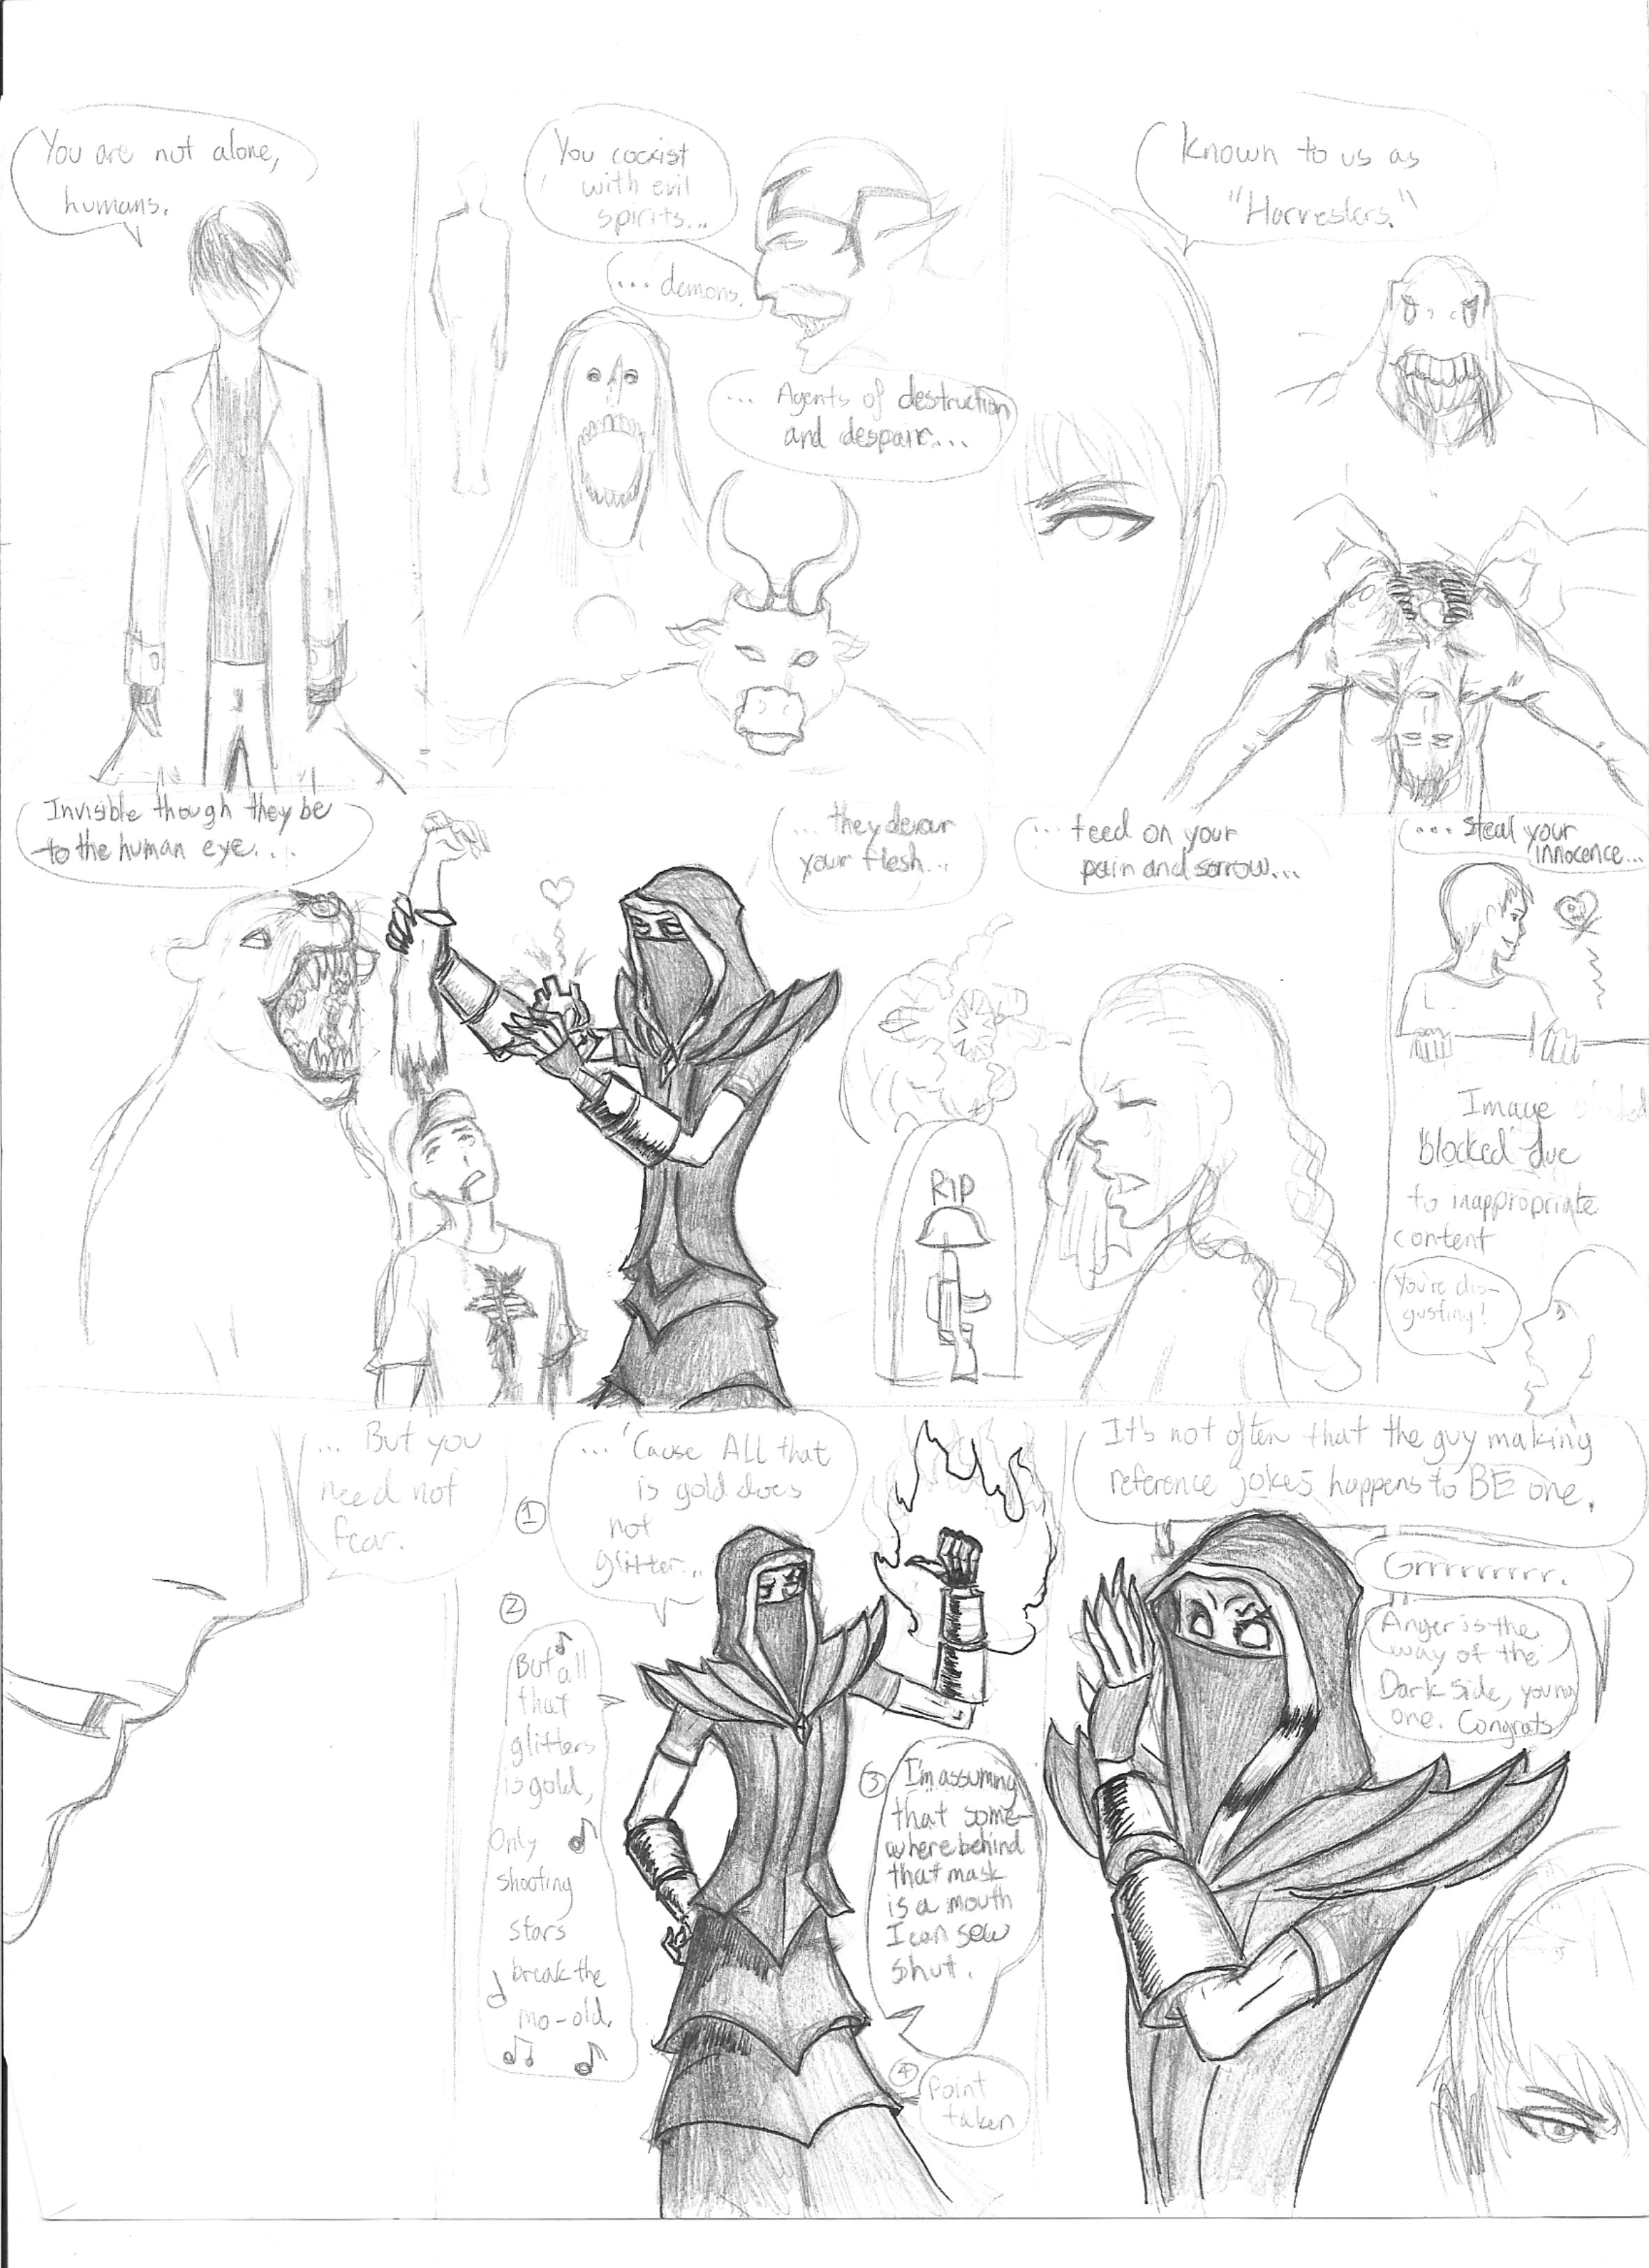 You are not alone,
humans.
You coexist
with evil
spirits...
... demons.
... Agents of destruction
and despair....
Known to us as
"Harvesters."
Invisible though they be
to the human eye...
... they devour
your flesh...
... feed on your
pain and sorrow...
... steal your
innocence...
RIP
Image
blocked due
to inappropriate
content
You're dis-
gusting!
... But you
need not
fear.
1
... 'Cause All that
is gold does
not
glitter...
2
But all
that
glitters
is gold,
Only
shooting
stars
break the
mo-old.
3
I'm assuming
that some-
where behind
that mask
is a mouth
I can sew
shut.
4
Point
taken
It's not often that the guy making
reference jokes happens to BE one.
Grrrrrrrrr.
Anger is the
way of the
Dark Side, young
one. Congrats